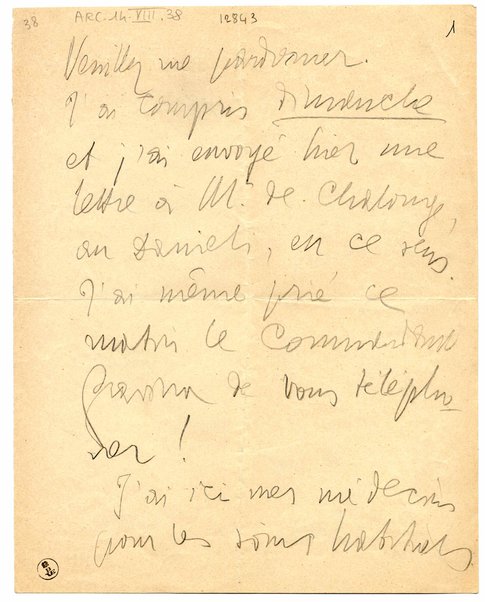 38 ARC.14-VIII.38 12843 1
Veuillez me pardonner.
J'ai compris dimanche
et j'ai envoyé hier une
lettre à M. de Chalonge,
au Danieli, en ce sens.
J'ai même prié ce
matin le Commandant
de vous télépho-
ner !
J'ai ici mes médecins
pour les soins habituels.